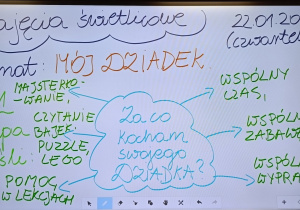 zajęcia świetlicowe
22.01.20
(czwartek
mat: MÓJ DZIADEK.
MAJSTERKO-
WANIE,
CZYTANIE
BAJEK,
PUZZLE,
LEGO
POMOC
W LEKCJACH
Za co
kocham
swojego
DZIADKA?
WSPÓLNY
CZAS,
WSPÓLN
ZABAWA
WSPÓL
WYPRA